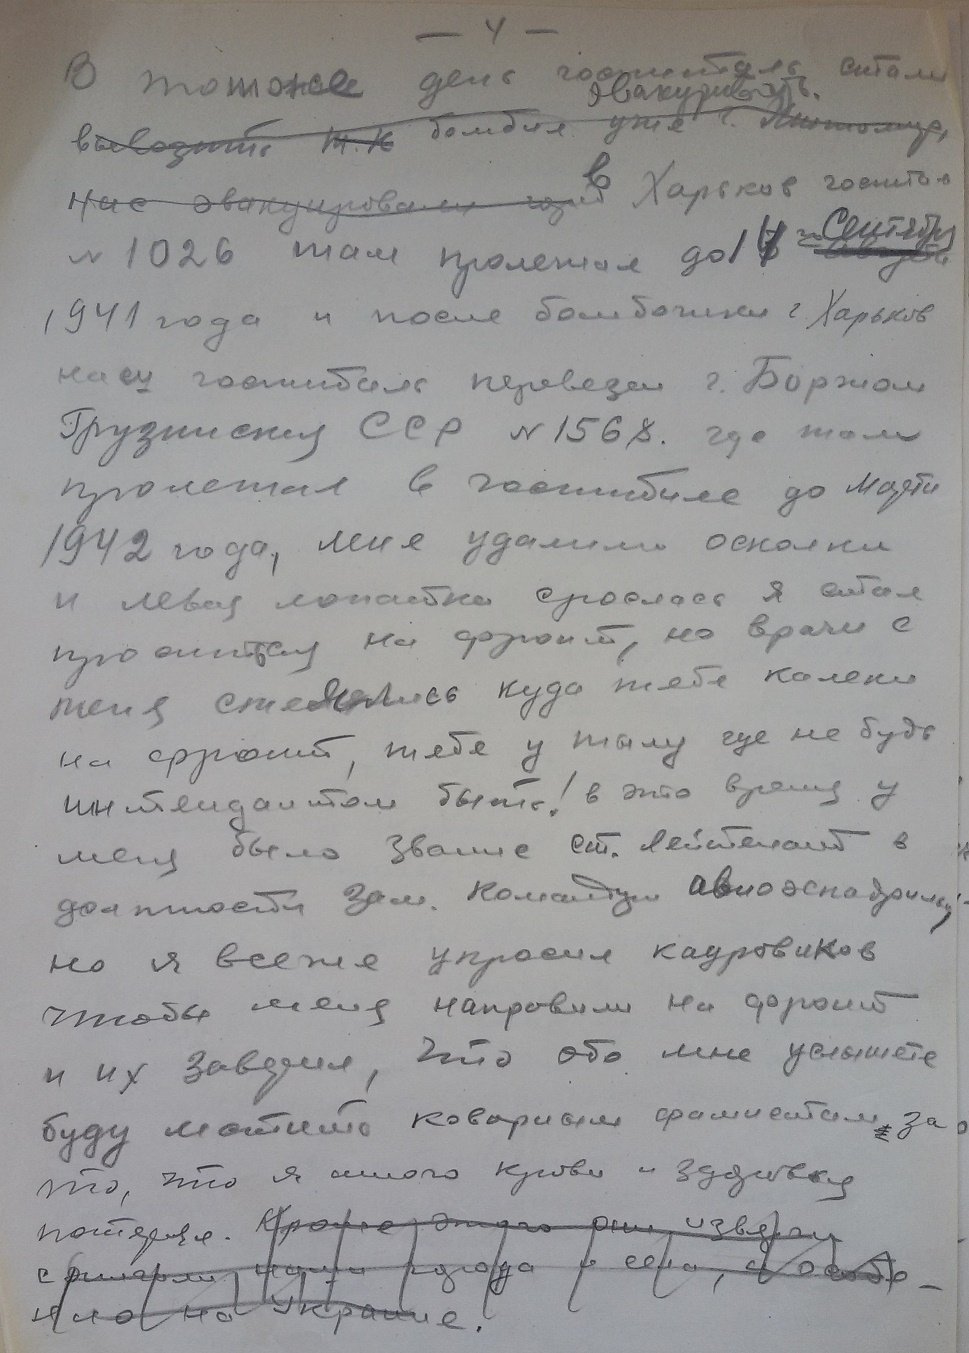 — 4 —
В тотоже день госпиталь стали
эвакуировать.
вывозить т.к бомбил уже г. Житомир,
нас эвакуировали в Харьков госпитал
№ 1026 там пролежал до 17 Сентября
1941 года и после бомбочики г. Харьков
наш госпиталь перевезен г. Боржом
Грузинския ССР № 1568. где там
пролежал в госпитале до марта
1942 года, мне удалили осколки
и левая лопатка срослась я стал
проситься на фронт, но врачи с
меня смеялись куда тебе калеки
на фронт, тебе у тылу где не будь
интендантом быть! в это время у
меня было звание ст. лейтенант в
должности зам. командир авиоэскадрильи,
но я всеже упросил кадровиков
чтобы меня направили на фронт
и их заверил, что обо мне услышете
буду мстить коварным фашистам за
то, что я много крови и здоровья
потерял. Кроме этого они извергли
с нашими города и села, а особе-
нно на Украине.